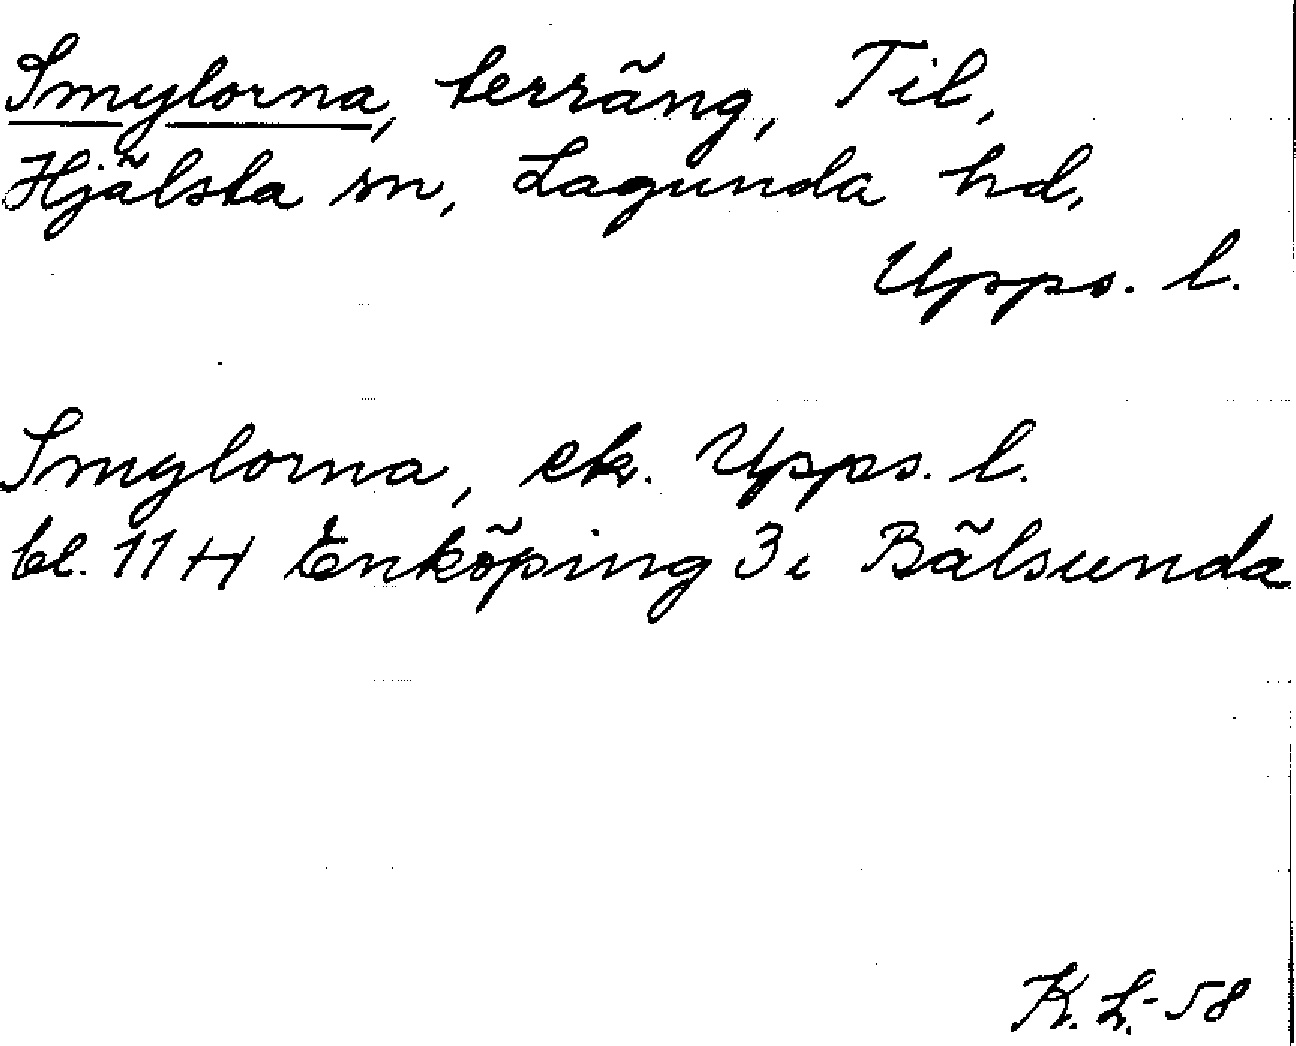 Smylorna, terräng, Til,
Hjälsta sn, Lagunda hd,
Upps. l.
Smylorna, ek. Upps. l.
bl. 11H Enköping 3i Bälsunda
K. L. -58